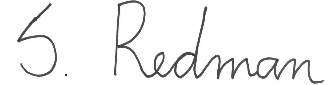 S. Redman